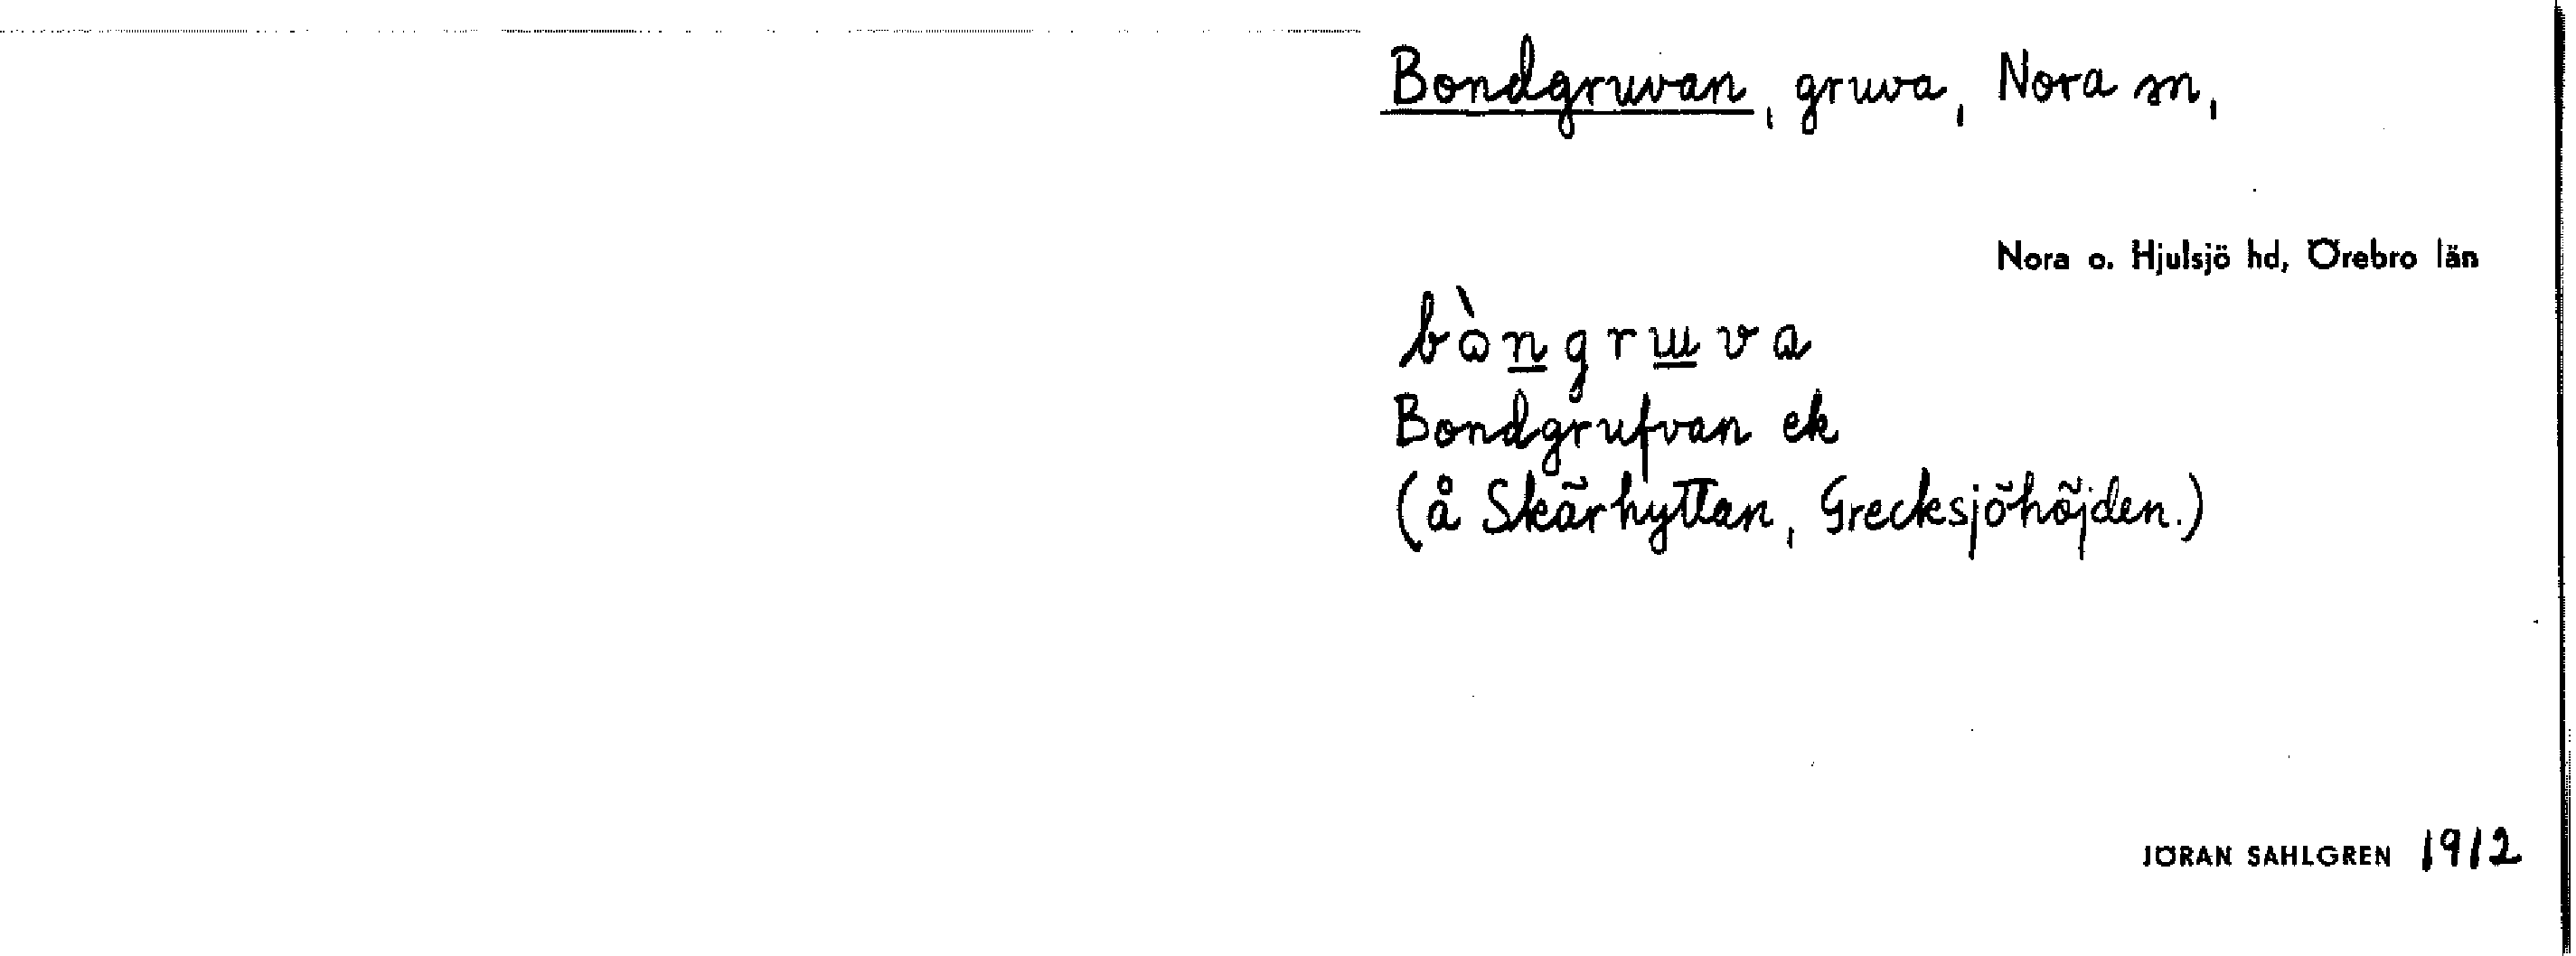 Bondgruvan, gruva, Nora sn,
Nora o. Hjulsjö hd, Örebro län
bὼngrɯva
Bondgrufvan ek
(å Skärhyttan, Grecksjöhöjden.)
JÖRAN SAHLGREN 1912